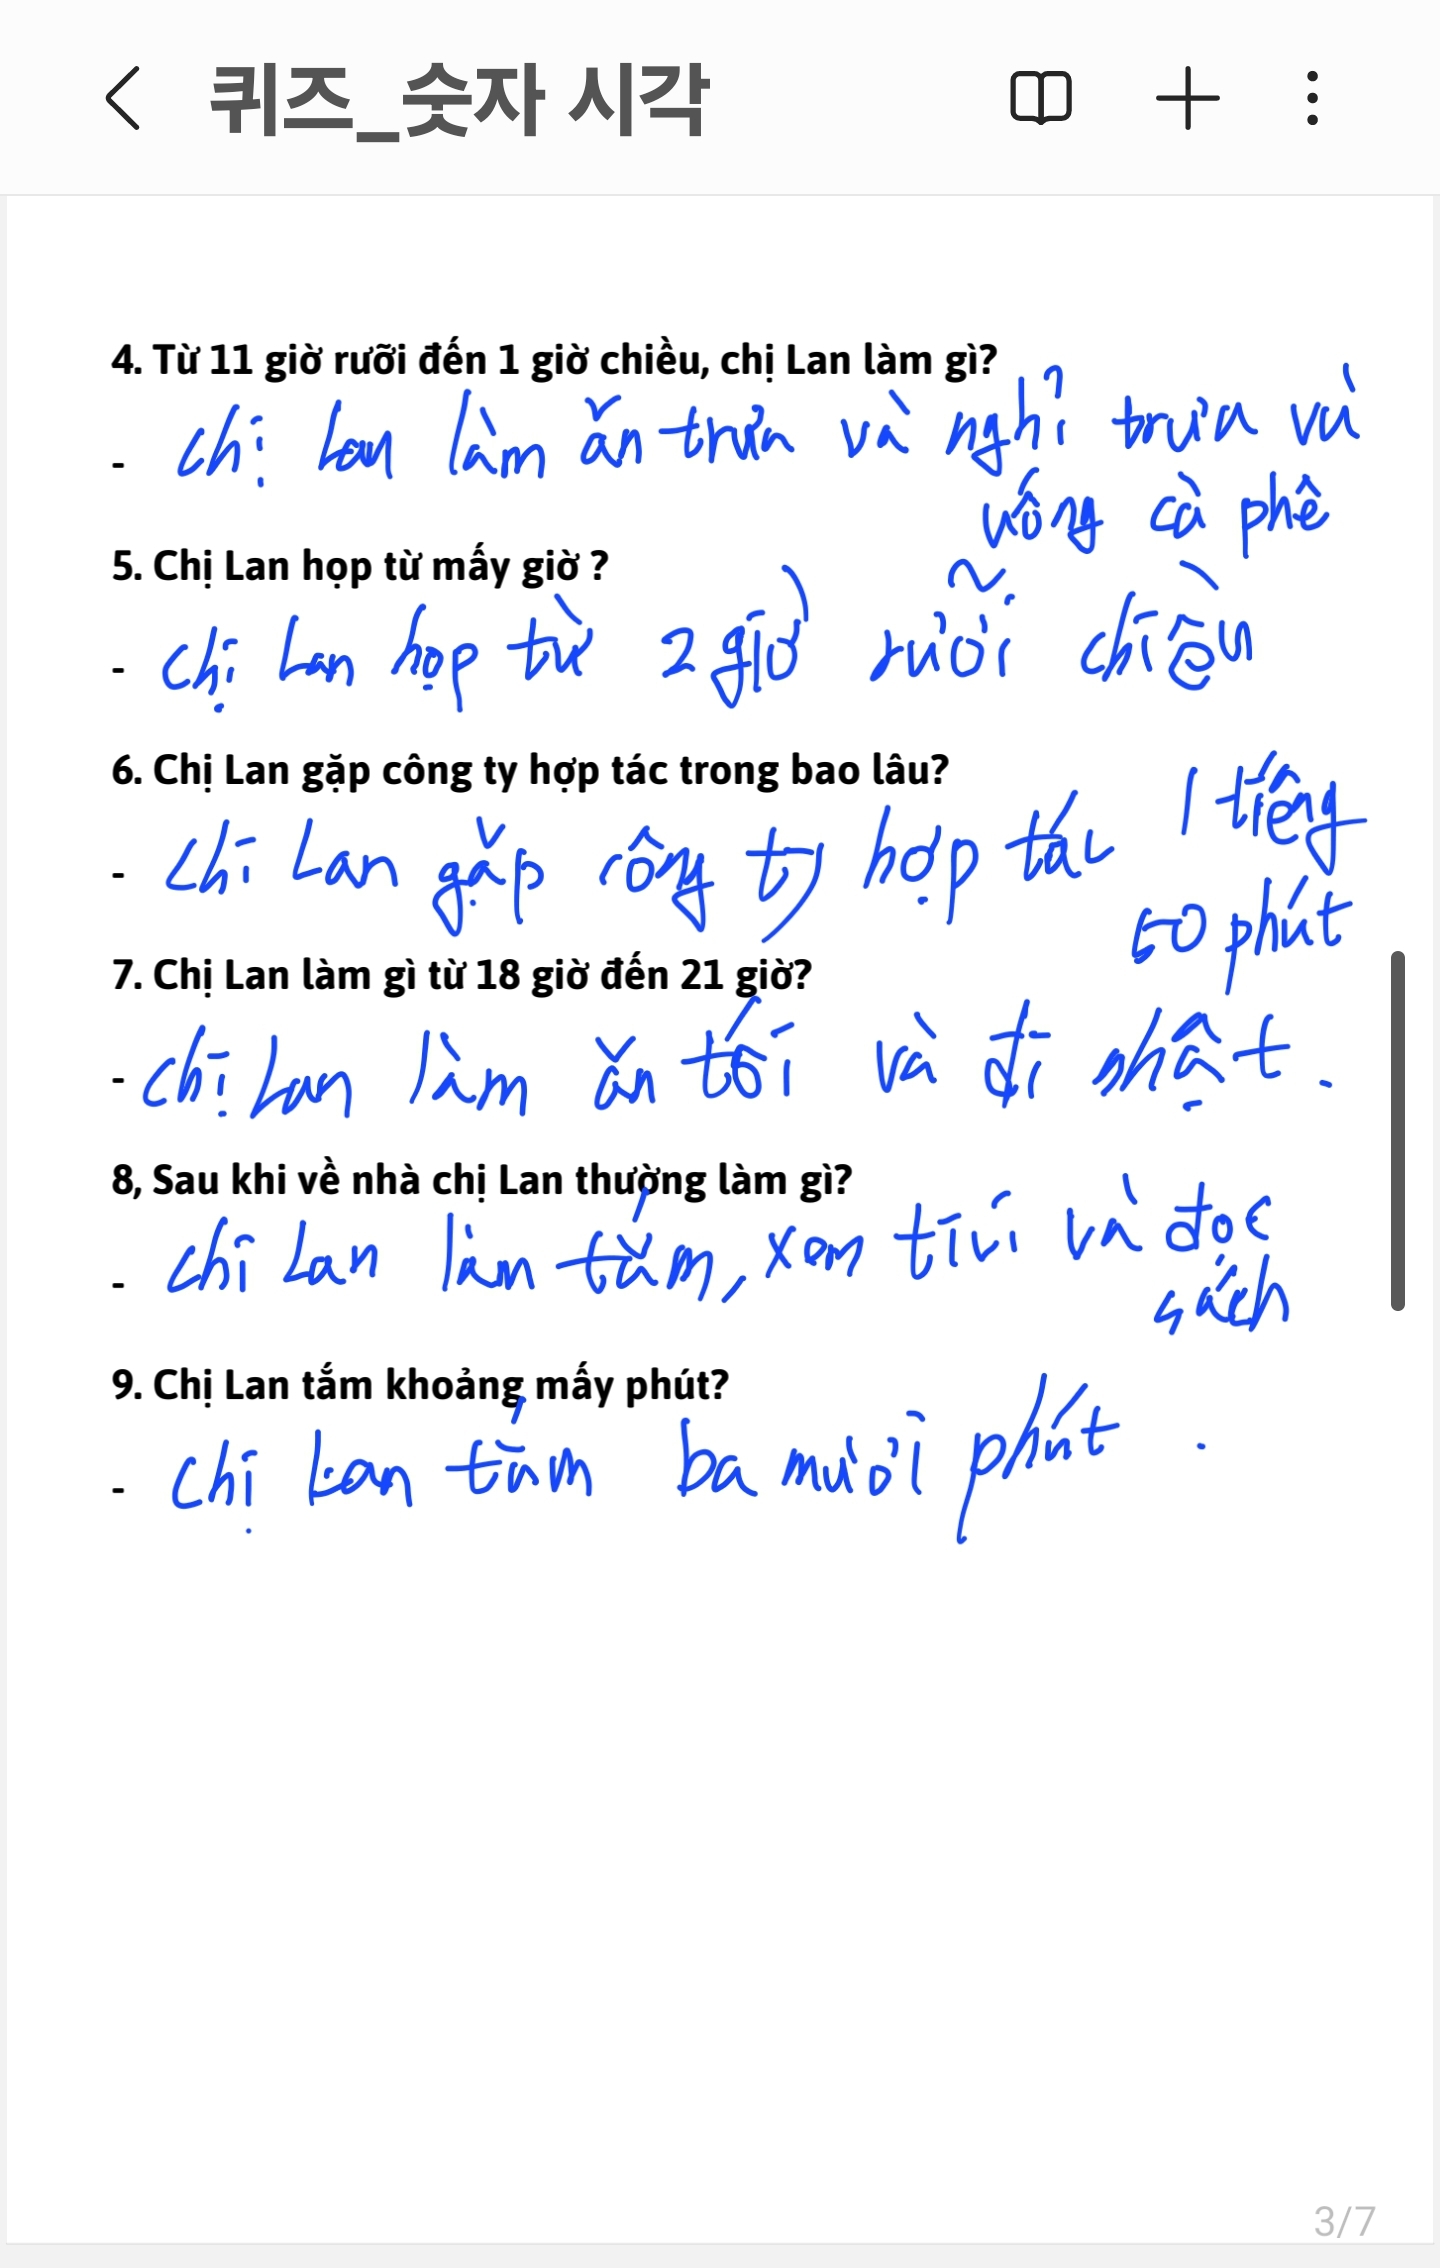 퀴즈_숫자 시각
4. Từ 11 giờ rưỡi đến 1 giờ chiều, chị Lan làm gì?
- chị Lan làm ăn trưa và nghỉ trưa và
uống cà phê
5. Chị Lan họp từ mấy giờ ?
- chị Lan họp từ 2 giờ rưỡi chiều
6. Chị Lan gặp công ty hợp tác trong bao lâu?
- chi Lan gặp công ty hợp tác 1 tiếng
50 phút
7. Chị Lan làm gì từ 18 giờ đến 21 giờ?
- chị Lan làm ăn tối và đi nhật.
8, Sau khi về nhà chị Lan thường làm gì?
- chi Lan làm tắm, xem tivi và đọc
sách
9. Chị Lan tắm khoảng mấy phút?
- chị Lan tắm ba mươi phút.
3/7